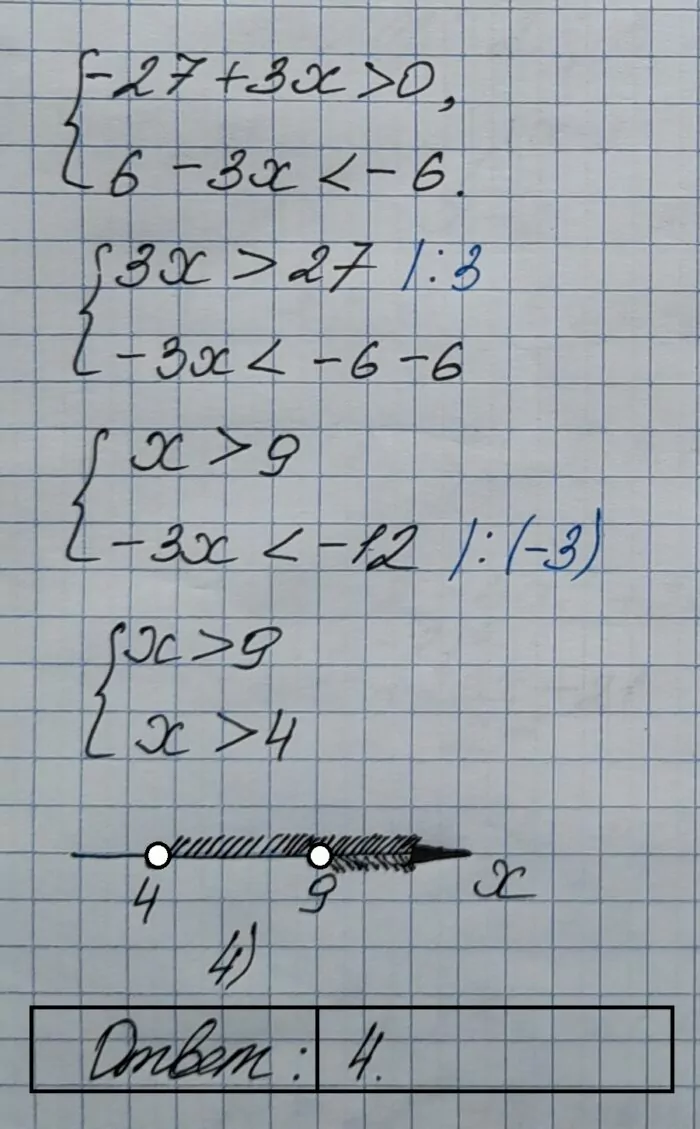 {-27+3x>0,
6-3x<-6.
{3x>27 |:3
-3x<-6-6
{x>9
-3x<-12 |:(-3)
{x>9
x>4
4 9 x
4)
Ответ: 4.